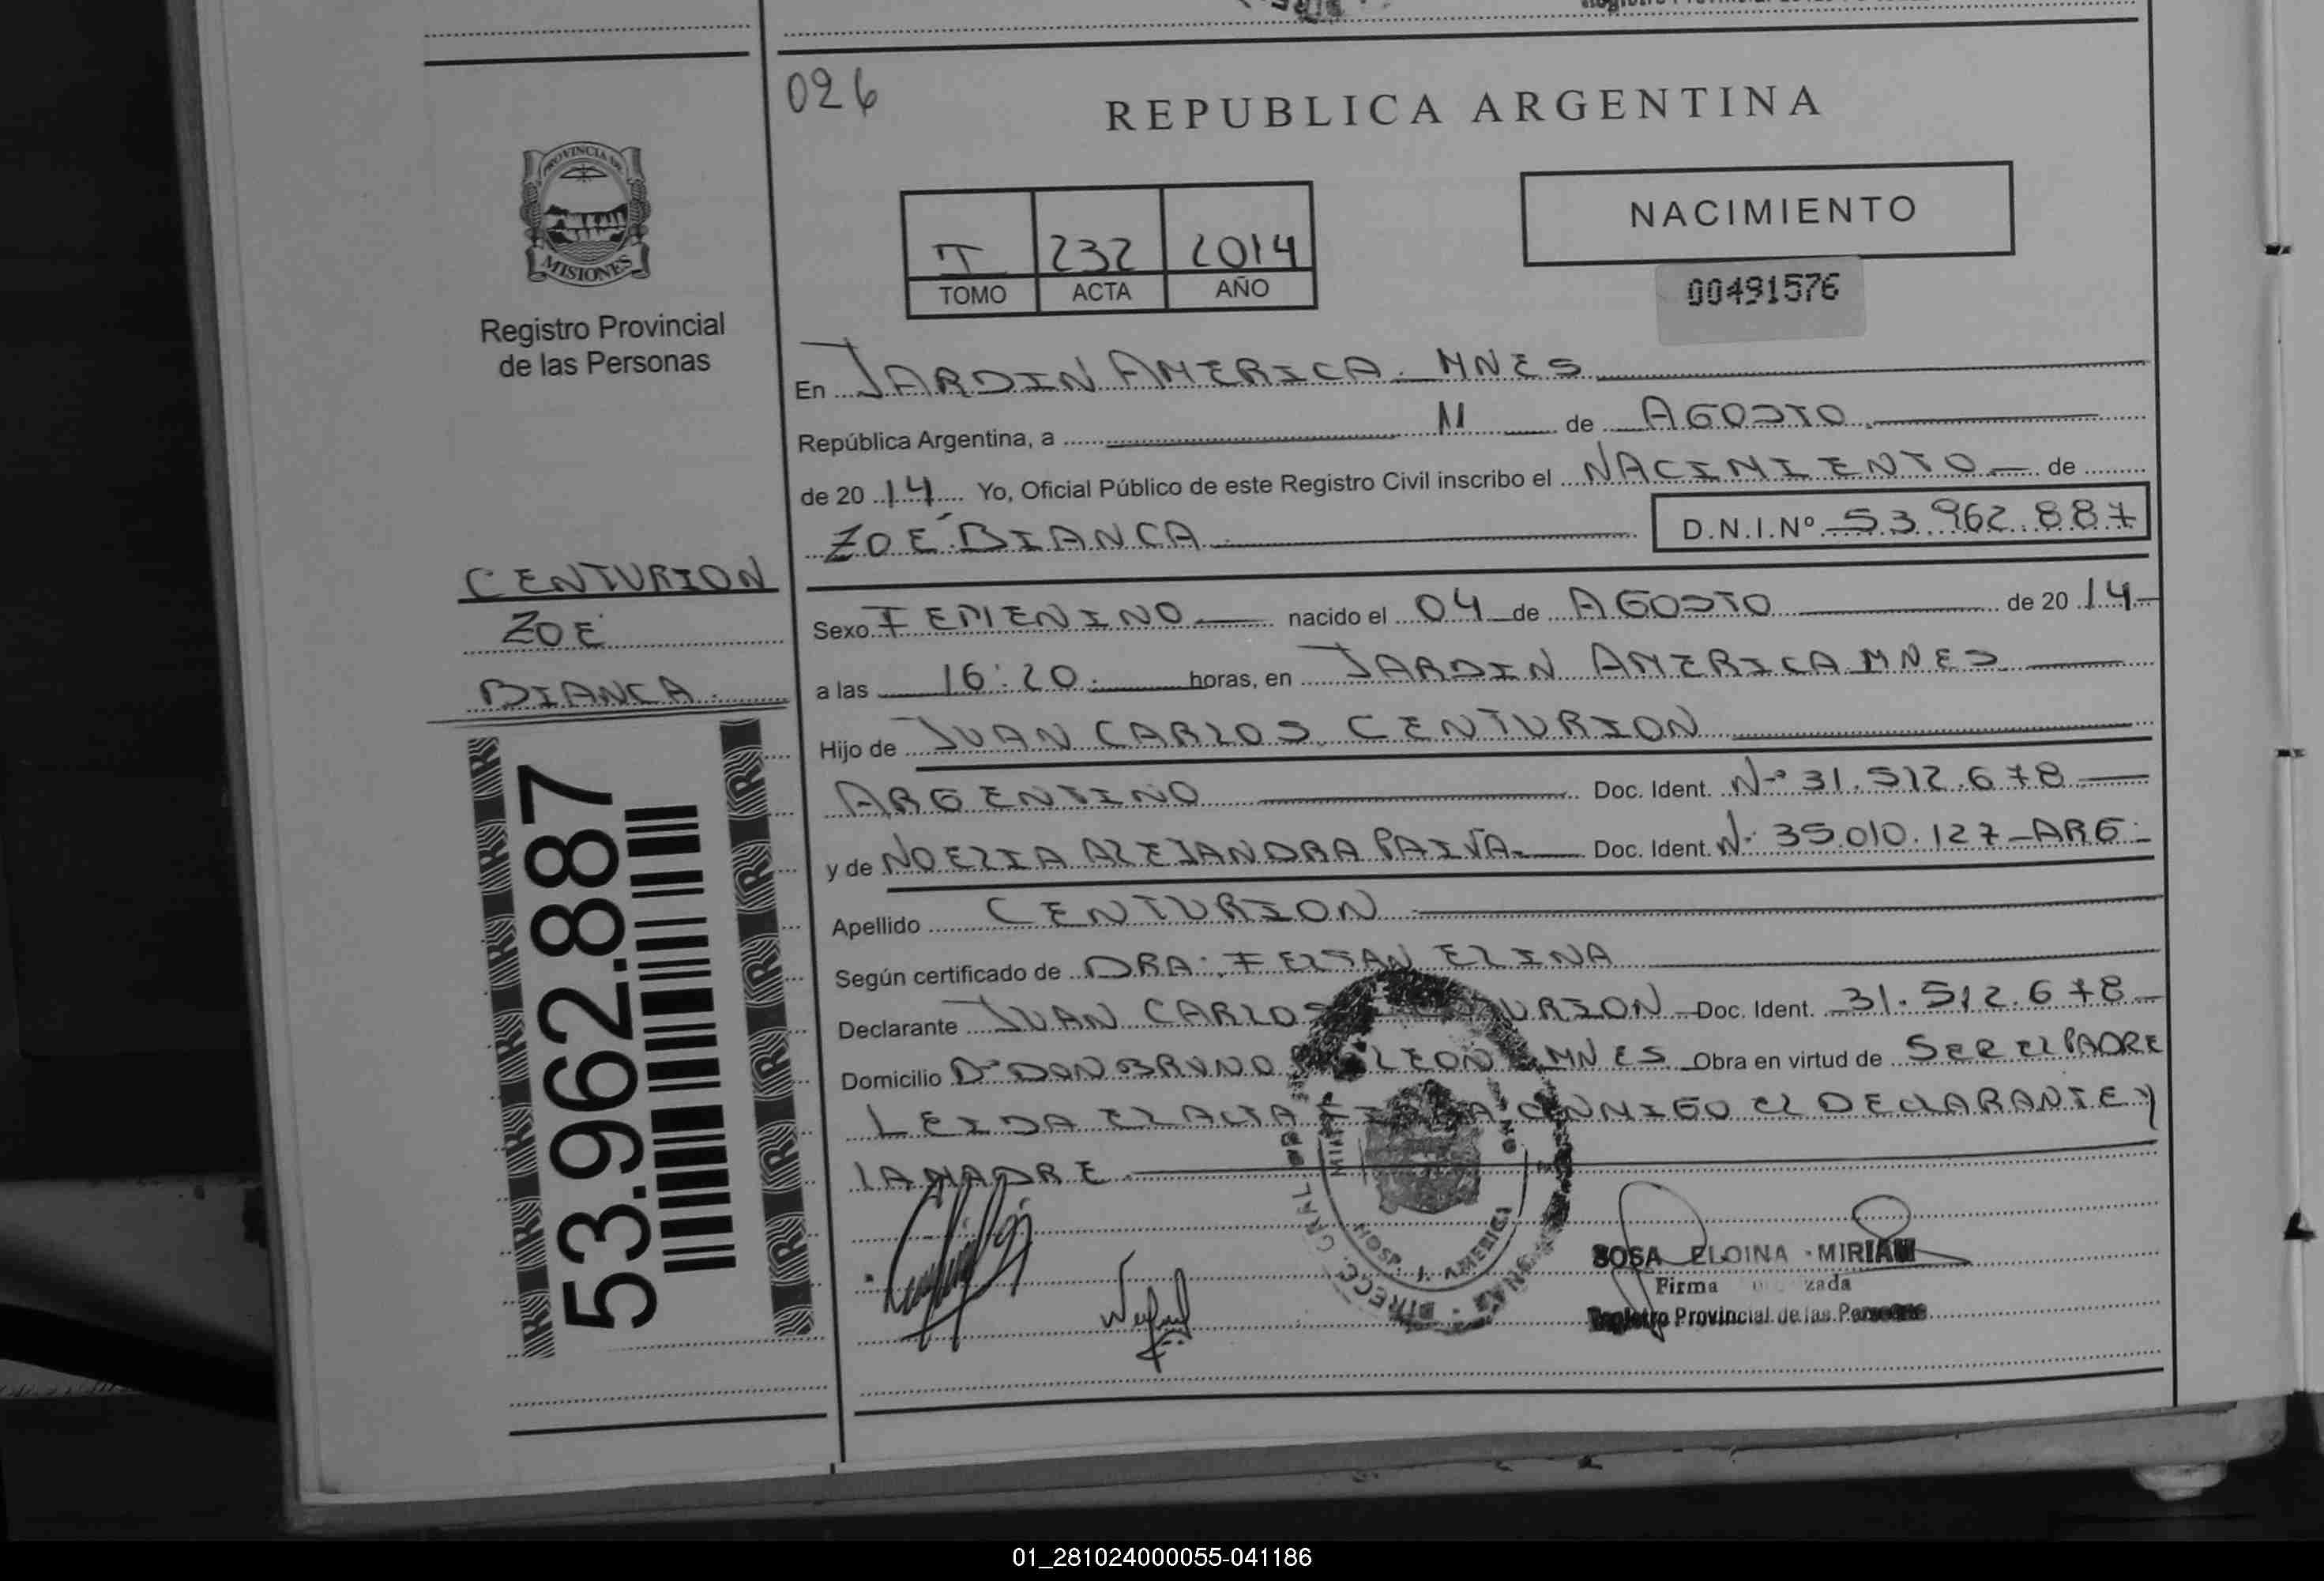 026
REPUBLICA ARGENTINA
PROVINCIA DE
MISIONES
Registro Provincial
de las Personas
I 232 2014
TOMO ACTA AÑO
NACIMIENTO
00491576
En JARDIN AMERICA. MNES
República Argentina, a 11 de AGOSTO
de 20 14 Yo, Oficial Público de este Registro Civil inscribo el NACIMIENTO de
ZOÉ BIANCA D.N.I.Nº 53.962.887
CENTURION
ZOE
BIANCA
Sexo FEMENINO nacido el 04 de AGOSTO de 20 14
a las 16:20 horas, en JARDIN AMERICA MNES
Hijo de JUAN CARLOS CENTURION
ARGENTINO Doc. Ident. Nº 31.512.678
y de NOELIA ALEJANDRA PAIVA Doc. Ident. Nº 35.010.127-ARG
Apellido CENTURION
Según certificado de DRA: ELINA
Declarante JUAN CARLOS URION Doc. Ident. 31.512.678
Domicilio Bº DON BRUNO LEON MNES Obra en virtud de SER EL PADRE
LEIDA EL ACTA CONMIGO EL DECLARANTE Y
LA MADRE
53.962.887
HOSP. J. AMERICA
DIRECC. GRAL. DE
SOSA ELOINA MIRIAM
Firma
Registro Provincial de las Personas
01_281024000055-041186